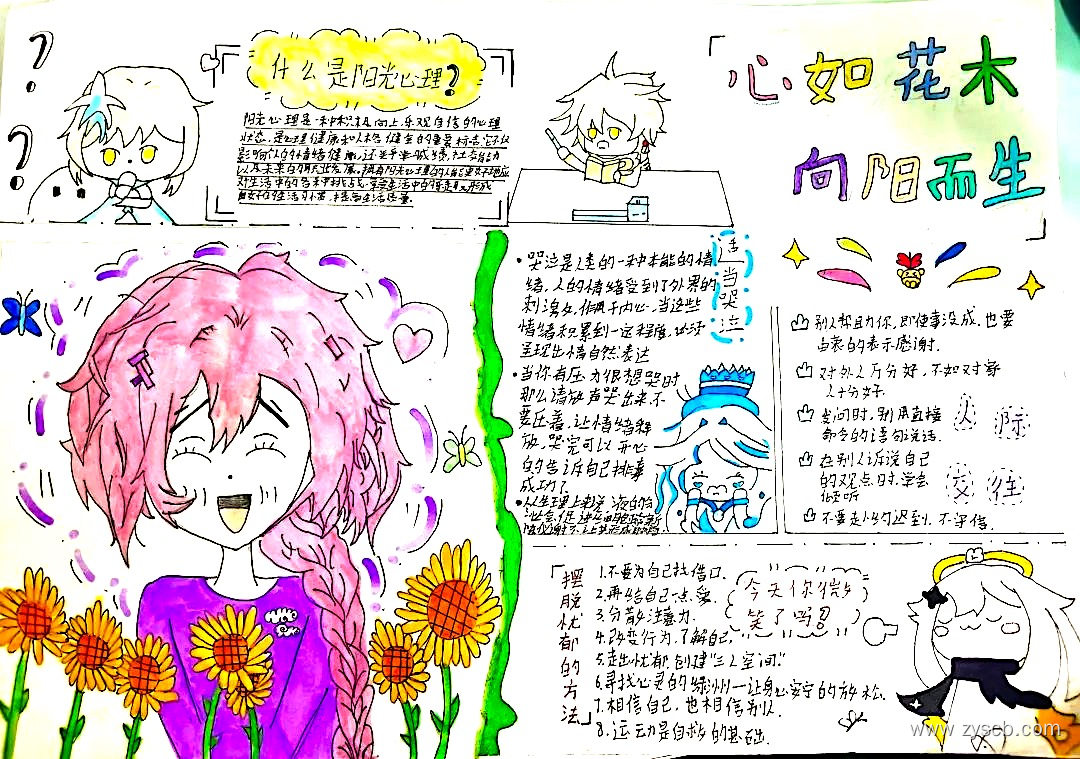 什么是阳光心理?
阳光心理是一种积极向上,乐观自信的心理
状态,是心理健康和人格健全的重要标志,它不仅
影响人的情绪健康,还关乎学业成绩,社交能力
以及未来的职业发展。拥有阳光心理的人能更好地应
对生活中的各种挑战,享受生活中的
良好的生活习惯,提高生活质量。
心如花木
向阳而生
适当哭泣
•哭泣是人类的一种本能的情
绪,人的情绪受到了外界的
刺激,作用于内心,当这些
情绪积累到一定程度,就会
呈现出情自然表达
•当你有压力很想哭时
那么请放声哭出来不
要压着,让情绪释
放,哭完可以开心
的告诉自己排毒
成功了
•从生理上来说
别人帮助你,即使事没成,也要
由衷的表示感谢.
对外人万分好,不如对家
人十分好.
发问时,别用直接
命令的语句说话.
在别人诉说自己
的观点时,学会
倾听
不要走小约迟到,不守信.
人际
交往
摆脱忧郁的方法
1.不要为自己找借口.
2.再给自己一点爱.
3.分散注意力.
4.改变行为,了解自己.
5.走出忧郁,创建"三人空间."
6.寻找心灵的绿洲一让身心安宁的放松.
7.相信自己,也相信别人.
8.运动是自救的基础.
今天你微
笑了吗?
www.zyseb.com